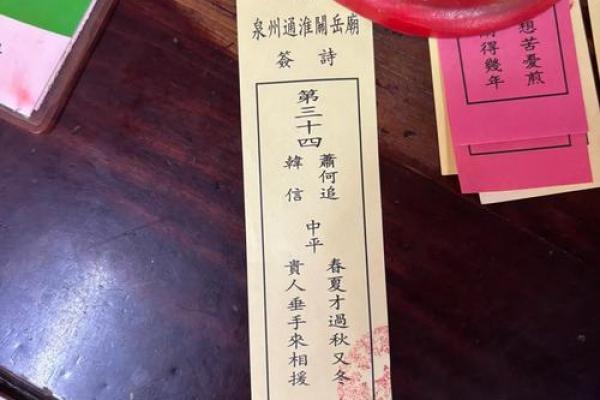 泉州通淮關岳廟
簽詩
第三十四
蕭何追
韓信
中平
春夏才過秋又冬
貴人垂手來相援
想苦憂煎
得幾年